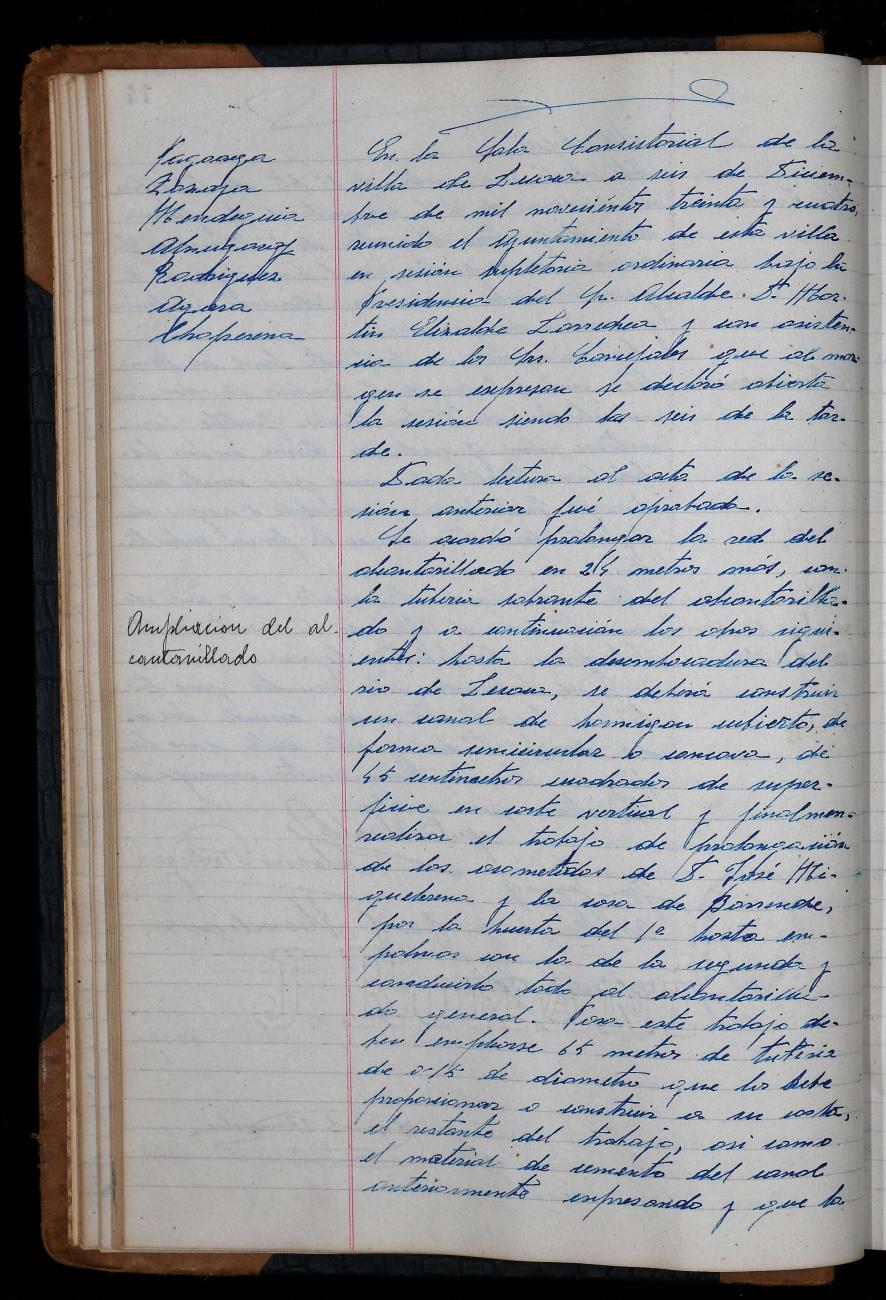 Zanaya
Mendiguia
Rodriguez
Agara
Chaperena
En la Sala Consistorial de la
villa de Lesaca a seis de Diciem-
bre de mil novecientos treinta y cuatro,
reunido el Ayuntamiento de esta villa
en sesión supletoria ordinaria bajo la
Presidencia del Sr. Alcalde D. Mar-
tin Elizalde Larrechea y con asisten-
cia de los Srs. Concejales que al mar-
gen se expresan se declaró abierta
la sesión siendo las seis de la tar-
de.
Dada lectura al acta de la se-
sión anterior fué aprobada.
Se acordó prolongar la red del
alcantarillado en 24 metros más, con
la tuberia sobrante del alcantarilla-
do y a continuación las obras sigui-
entes: hasta la desembocadura del
rio de Lesaca, se deberá construir
un canal de hormigon cubierto, de
forma semicircular o concava, de
45 centimetros cuadrados de super-
ficie en corte vertical y finalmen-
realizar el trabajo de prolongación
de las acometidas de D. José Mi-
quelerena y la casa de
por la huerta del 1º hasta em-
palmar con la de la segunda y
conducirlo todo al alcantarilla-
do general. Para este trabajo de-
ben emplearse 65 metros de tuberia
de 0'15 de diametro que los debe
proporcionar o construir a su costa,
el restante del trabajo, asi como
el material de cemento del canal
anteriormente expresando y que la
Ampliación del al-
cantarillado